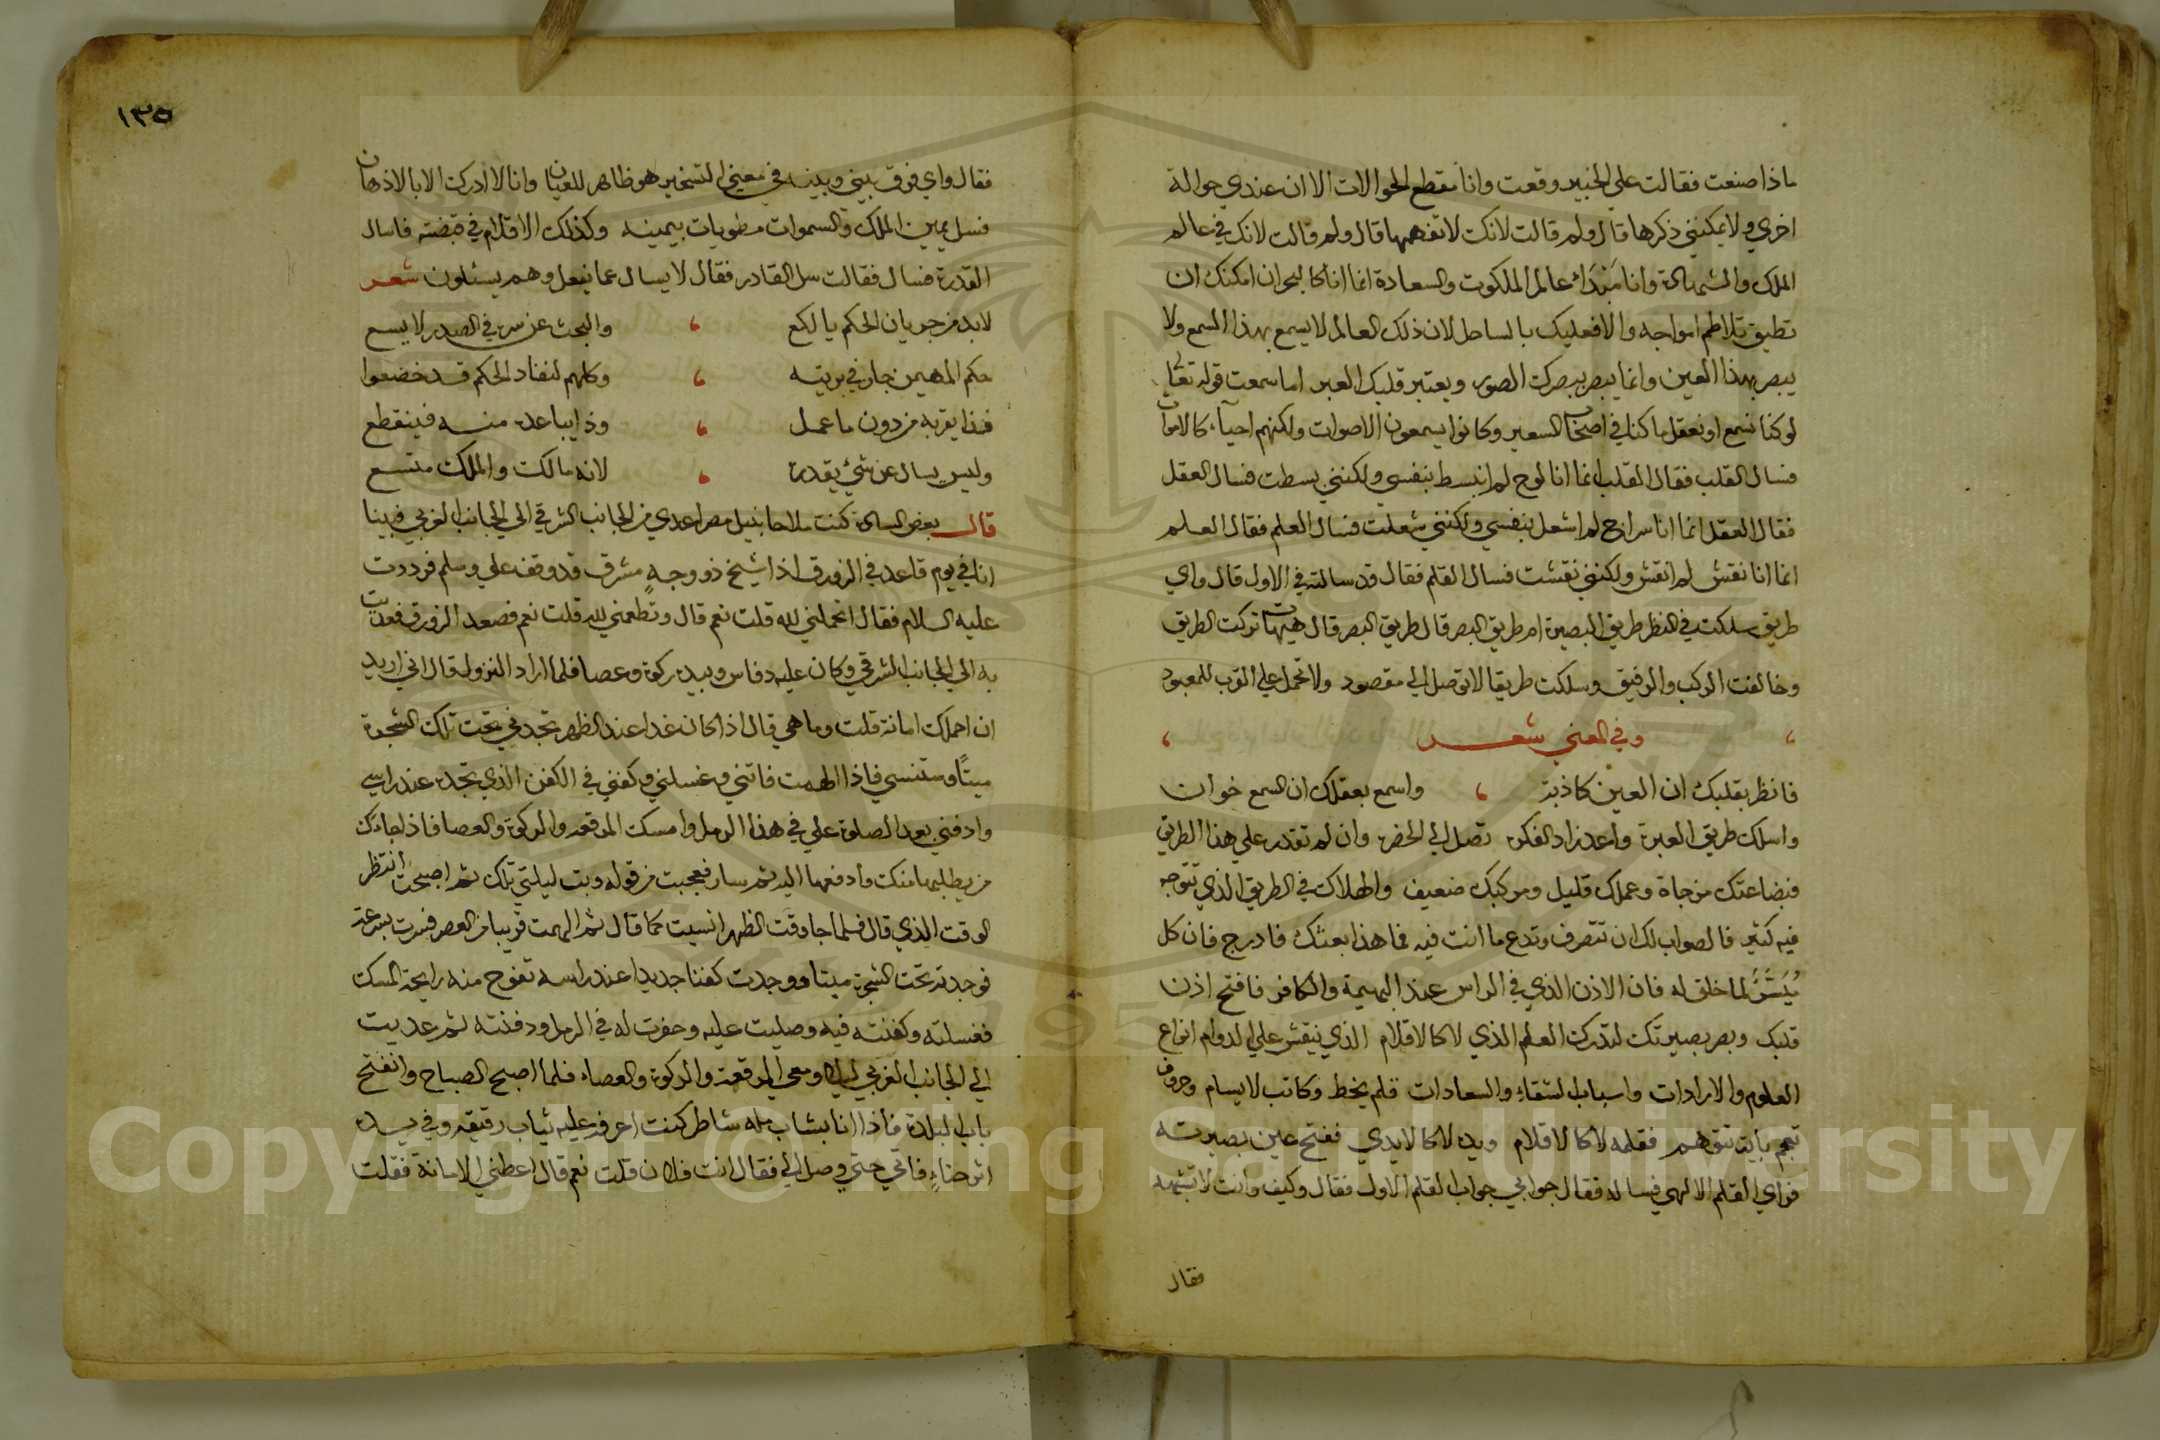 ماذا صنعت فقالت علي الخبير وقعت وانا مقطع الحوالات الا ان عندي حوالة
اخري ولا يمكنني ذكرها قال ولم قالت لانك لا تفهمها قال ولم قالت لانك في عالم
الملك والشهادة وانا مبتدأ عالم الملكوت والسعادة انما انا كالبحر ان امكنك ان
تطيق تلاطم امواجه والا فعليك بالساحل لان ذلك العالم لا يسمع بهذا السمع ولا
يبصر بهذا العين وانما يبصر ببصرك الصور ويعتبر قلبك العبر اما سمعت قوله تعالي
لو كنا نسمع او نعقل ما كنا في اصحاب السعير وكانوا يسمعون الاصوات ولكنهم احياء كالاموات
فسال القلب فقال القلب انما انا لوح لم انبسط بنفسي ولكنني بسطت فسال العقل
فقال العقل انما انا سراج لم اشعل بنفسي ولكنني شعلت فسال العلم فقال العلم
انما انا نقش لم انقش ولكنني نقشت فسال القلم فقال قد سالته في الاول قال واي
طريق سلكت في النظر طريق البصيرة ام طريق البصر قال طريق البصر قال هيهات تركت الطريق
وخالفت الركب والرفيق وسلكت طريقا لا توصل الي مقصود ولا تحمل علي القرب للمعبود
وفي المعني شعر
فانظر بقلبك ان العين كاذبة واسمع بعقلك ان السمع خوان
واسلك طريق العبرة واعد زاد الفكرة تصل الي الحضرة وان لم تقدر علي هذا الطريق
فبضاعتك مزجاة وعملك قليل ومركبك ضعيف والهلاك في الطريق الذي تتوجه
فيه كثير فالصواب لك ان تتصرف وتدع ما انت فيه فما هذا بعشك فادرج فان كل
ميسر لما خلق له فان الاذن الذي في الراس عند البهيمة والكافر فافتح اذن
قلبك وبصر بصيرتك لتدرك العلم الذي لا كالاقلام الذي ينقش علي الدوام انواع
العلوم والارادات واسباب الشقاء والسعادات قلم يخط وكاتب لا يسام وحروف
تعجم باية تتوهم فقلمه لا كالاقلام ويده لا كالايدي ففتح عين بصيرته
فراي القلم الالهي فساله فقال جوابي جواب القلم الاول فقال وكيف وانت لا تشبهه
فقال
١٣٥
فقال واي فرق بيني وبينه في معني التسخير هو ظاهر للعيان وانا لا ادرك الا بالاذهان
فسل يمين الملك والسموات مطويات بيمينه وكذلك الاقلام في قبضته فاسال
القدرة فسال فقالت سل القادر فقال لا يسال عما يفعل وهم يسئلون شعر
لابد من جريان الحكم يا لكع والبحث عن سر في الصدر لا يسع
حكم المهيمن جار في بريته وكلهم لنفاد الحكم قد خضعوا
فذا يقربه من دون ما عمل وذا يباعده منه فينقطع
وليس يسال عن شيء يقدره لانه مالك والملك متسع
قال بعض السادة كنت ملاحا بنيل مصر اعدي من الجانب الشرقي الي الجانب الغربي فبينا
انا في يوم قاعد في الزورق اذا شيخ ذو وجه مشرق قد وقف علي وسلم فرددت
عليه السلام فقال اتحملني لله قلت نعم قال وتطعمني لله قلت نعم فصعد الزورق فعديت
به الي الجانب الشرقي وكان عليه دفاس وبيده ركوة وعصا فلما اراد النزول قال اني اريد
ان احملك امانة قلت وما هي قال اذا كان غدا عند الظهر تجدني تحت تلك الشجرة
ميتا وستنسي فاذا الهمت فاتني وغسلني وكفني في الكفن الذي تجده عند راسي
وادفني بعد الصلوة علي في هذا الرمل وامسك المرقعة والركوة والعصا فاذا جاءك
من يطلبها منك وادفعها اليه ثم سار فعجبت من قوله وبت ليلتي تلك ثم اصبحت انتظر
الوقت الذي قال فلما جا وقت الظهر انسيت كما قال ثم الهمت قريبا من العصر فسرت بسرعة
فوجدته تحت الشجرة ميتا ووجدت كفنا جديدا عند راسه تفوح منه رايحة المسك
فغسلته وكفنته فيه وصليت عليه وحفرت له في الرمل ودفنته ثم عديت
الي الجانب الغربي ليلا ومعي المرقعة والركوة والعصاء فلما اصبح الصباح وانفتح
باب البلدة فاذا انا بشاب شاطر كنت اعرفه عليه ثياب رقيقة وفي يده
اثر حناء فاتي حتي وصل الي فقال انت فلان قلت نعم قال اعطني الامانة فقلت
Copyright © King Saud University